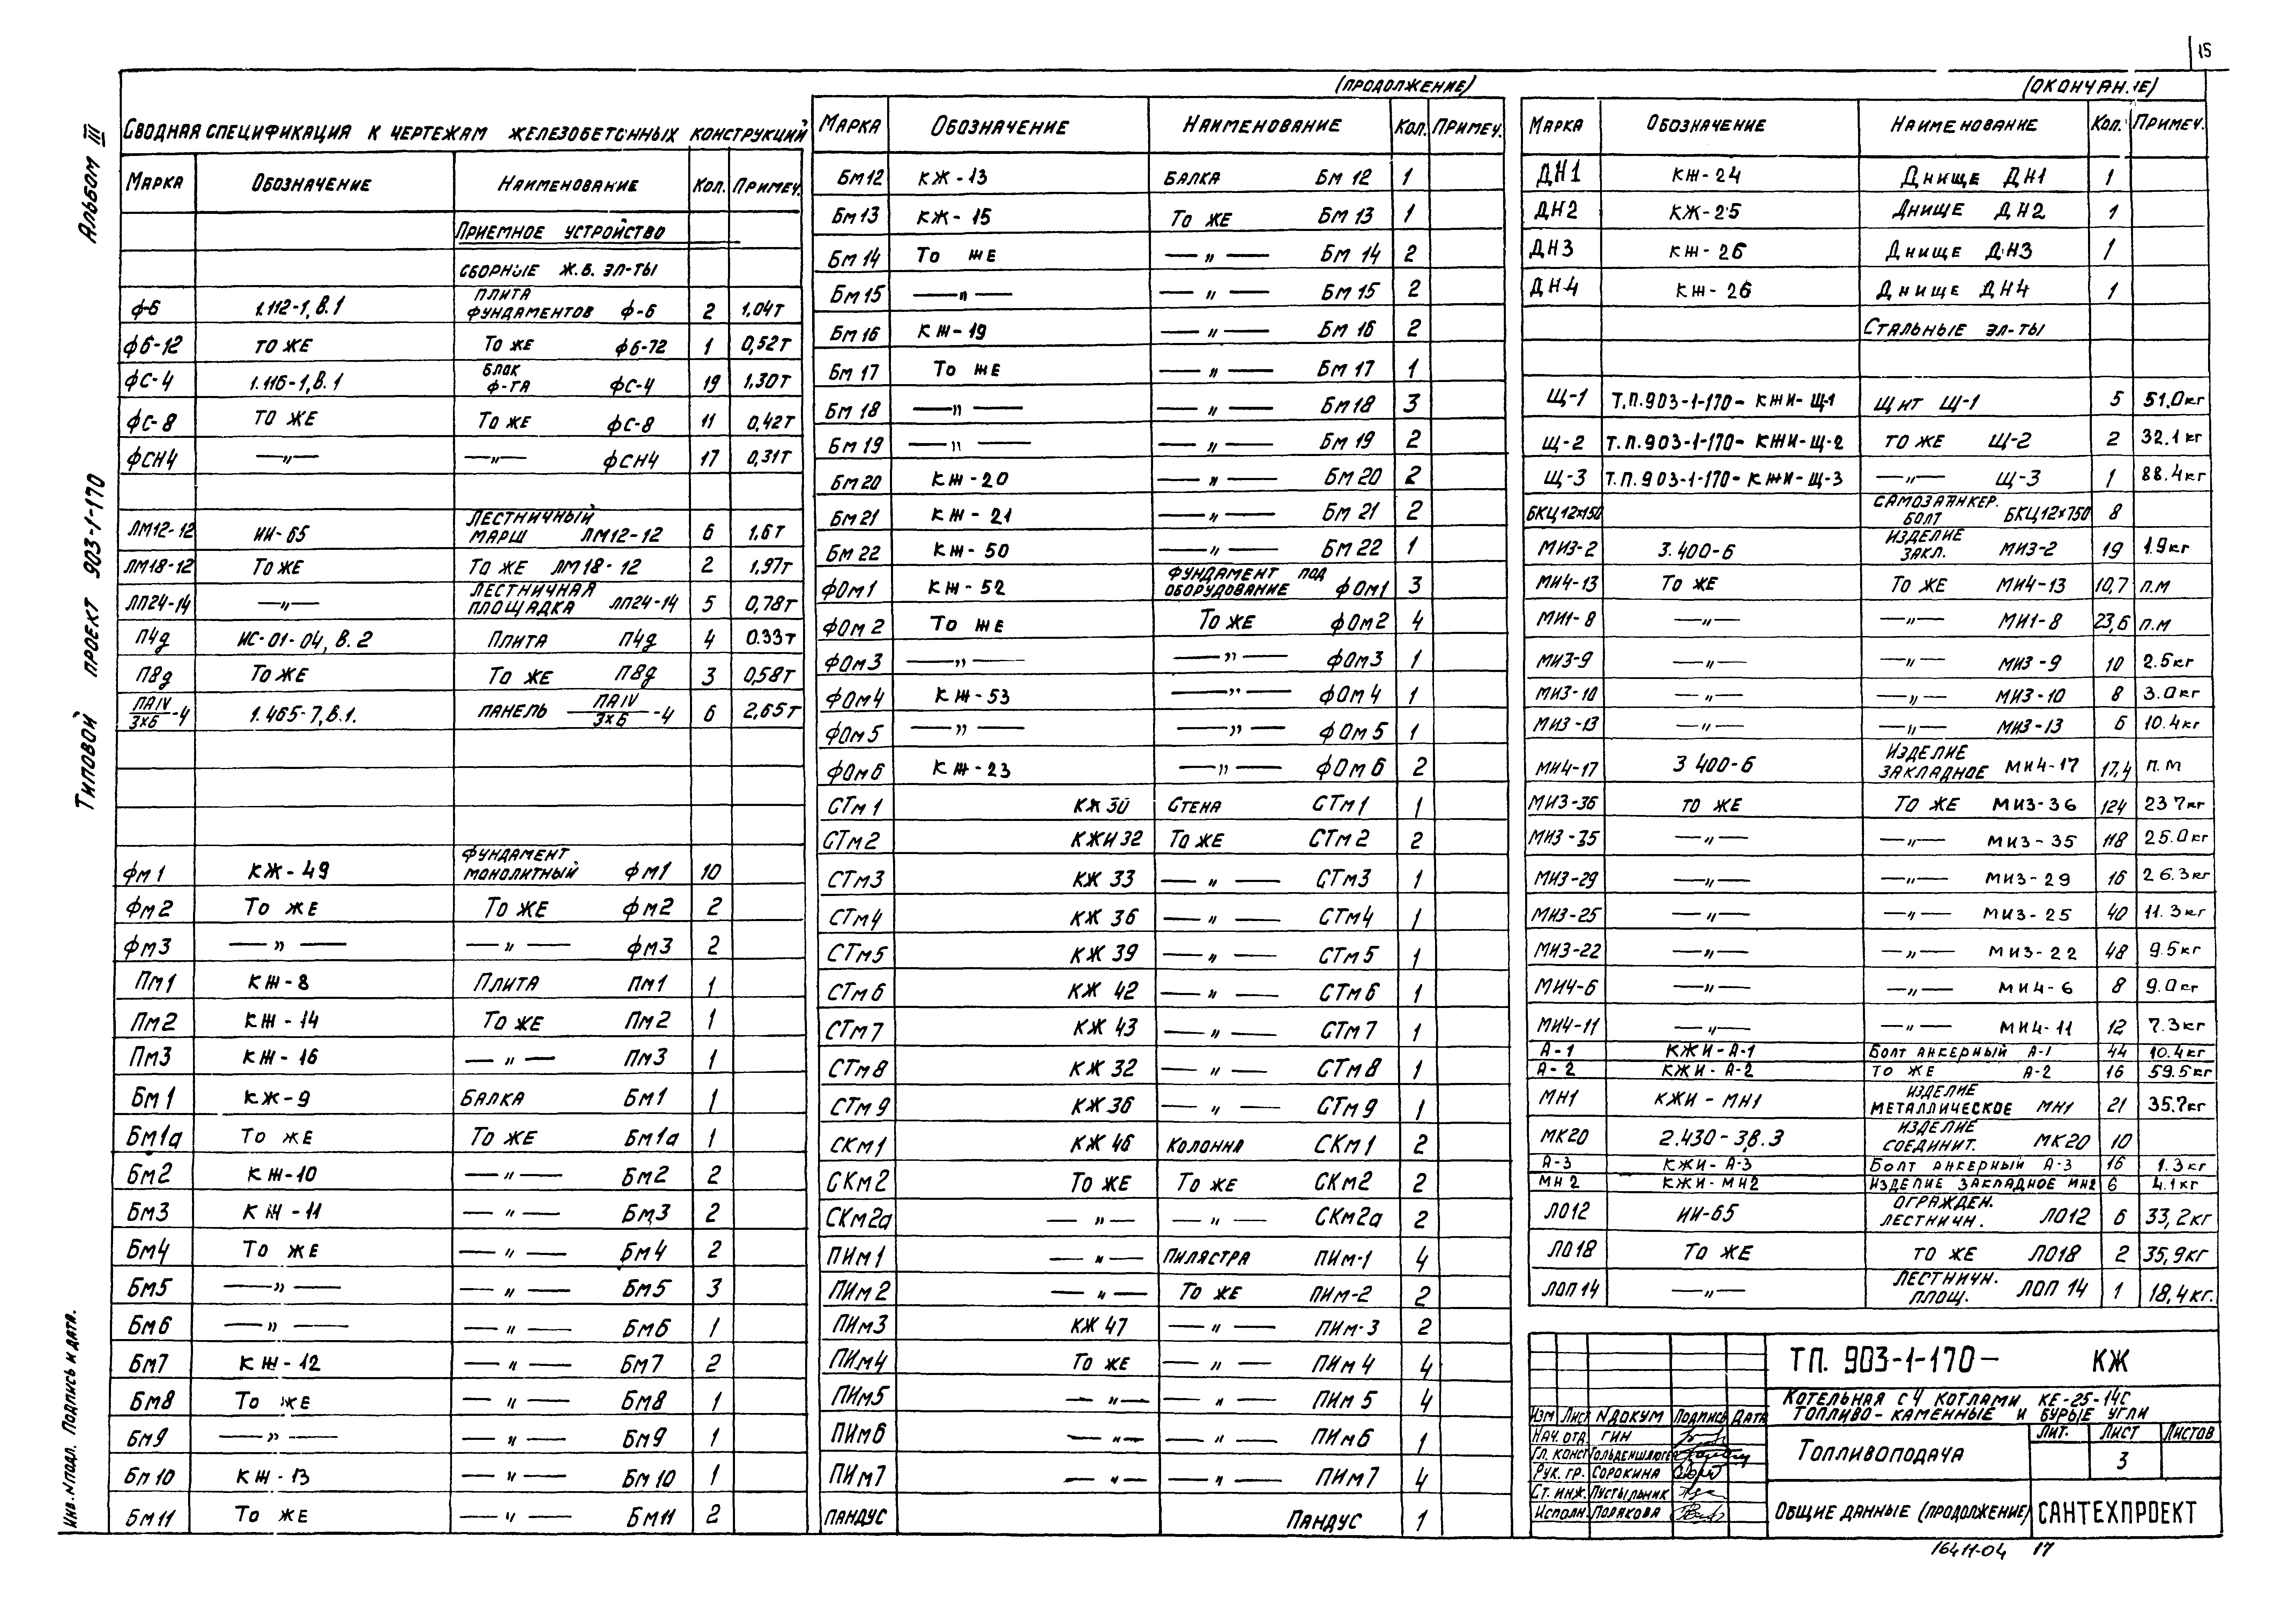 15
Альбом III
Типовой проект 903-1-170
Инв. № подл. Подпись и дата.
Сводная спецификация к чертежам железобетонных конструкций
Марка Обозначение Наименование Кол. Примеч.
Приемное устройство
сборные ж.б. эл-ты
ф-6 1.112-1, в.1 плита фундаментов ф-6 2 1,04т
ф6-12 то же то же ф6-72 1 0,52т
фс-4 1.116-1, в.1 блок ф-та фс-4 19 1,30т
фс-8 то же то же фс-8 11 0,42т
фсн4 —"— —"— фсн4 17 0,31т
ЛМ12-12 ИИ-65 лестничный марш ЛМ12-12 6 1,6т
ЛМ18-12 то же то же ЛМ18-12 2 1,97т
ЛП24-14 —"— лестничная площадка ЛП24-14 5 0,78т
П4д ИС-01-04, в.2 плита П4д 4 0.33т
П8д то же то же П8д 3 0,58т
ПАIV/3х6-4 1.465-7, в.1. панель ПАIV/3х6-4 6 2,65т
фм1 КЖ-49 фундамент монолитный фм1 10
фм2 то же то же фм2 2
фм3 —"— —"— фм3 2
Пм1 КЖ-8 Плита Пм1 1
Пм2 КЖ-14 То же Пм2 1
Пм3 КЖ-16 —"— Пм3 1
Бм1 КЖ-9 Балка Бм1 1
Бм1а То же То же Бм1а 1
Бм2 КЖ-10 —"— Бм2 2
Бм3 КЖ-11 —"— Бм3 2
Бм4 То же —"— Бм4 2
Бм5 —"— —"— Бм5 3
Бм6 —"— —"— Бм6 1
Бм7 КЖ-12 —"— Бм7 2
Бм8 То же —"— Бм8 1
Бм9 —"— —"— Бм9 1
Бм10 КЖ-13 —"— Бм10 1
Бм11 То же —"— Бм11 2
(продолжение)
Марка Обозначение Наименование Кол. Примеч.
Бм12 КЖ-13 Балка Бм12 1
Бм13 КЖ-15 То же Бм13 1
Бм14 То же —"— Бм14 2
Бм15 —"— —"— Бм15 2
Бм16 КЖ-19 —"— Бм16 2
Бм17 То же —"— Бм17 1
Бм18 —"— —"— Бм18 3
Бм19 —"— —"— Бм19 2
Бм20 КЖ-20 —"— Бм20 2
Бм21 КЖ-21 —"— Бм21 2
Бм22 КЖ-50 —"— Бм22 1
фОм1 КЖ-52 фундамент под оборудование фОм1 3
фОм2 То же То же фОм2 4
фОм3 —"— —"— фОм3 1
фОм4 КЖ-53 —"— фОм4 1
фОм5 —"— —"— фОм5 1
фОм6 КЖ-23 —"— фОм6 2
СТм1 КЖ 30 Стена СТм1 1
СТм2 КЖИ 32 То же СТм2 2
СТм3 КЖ 33 —"— СТм3 1
СТм4 КЖ 36 —"— СТм4 1
СТм5 КЖ 39 —"— СТм5 1
СТм6 КЖ 42 —"— СТм6 1
СТм7 КЖ 43 —"— СТм7 1
СТм8 КЖ 32 —"— СТм8 1
СТм9 КЖ 36 —"— СТм9 1
СКм1 КЖ 46 Колонна СКм1 2
СКм2 То же То же СКм2 2
СКм2а —"— —"— СКм2а 2
ПИм1 —"— Пилястра ПИм-1 4
ПИм2 —"— То же ПИм-2 2
ПИм3 КЖ 47 —"— ПИм-3 2
ПИм4 То же —"— ПИм4 4
ПИм5 —"— —"— ПИм5 4
ПИм6 —"— —"— ПИм6 1
ПИм7 —"— —"— ПИм7 4
Пандус Пандус 1
(окончание)
Марка Обозначение Наименование Кол. Примеч.
ДН1 КЖ-24 Днище ДН1 1
ДН2 КЖ-25 Днище ДН2 1
ДН3 КЖ-26 Днище ДН3 1
ДН4 КЖ-26 Днище ДН4 1
Стальные эл-ты
Щ-1 Т.П.903-1-170-КЖИ-Щ-1 Щит Щ-1 5 51.0кг
Щ-2 Т.П.903-1-170-КЖИ-Щ-2 то же Щ-2 2 32.1кг
Щ-3 Т.П.903-1-170-КЖИ-Щ-3 —"— Щ-3 1 88.4кг
БКЦ12х150 самозаанкер. болт БКЦ12х750 8
МИ3-2 3.400-6 изделие закл. МИ3-2 19 1.9кг
МИ4-13 То же То же МИ4-13 10,7 п.м
МИ1-8 —"— —"— МИ1-8 23,6 п.м
МИ3-9 —"— —"— МИ3-9 10 2.5кг
МИ3-10 —"— —"— МИ3-10 8 3.0кг
МИ3-13 —"— —"— МИ3-13 6 10.4кг
МИ4-17 3 400-6 Изделие закладное МИ4-17 17,4 п.м
МИ3-36 то же то же МИ3-36 124 23 7кг
МИ3-35 —"— —"— МИ3-35 118 25.0кг
МИ3-29 —"— —"— МИ3-29 16 26.3кг
МИ3-25 —"— —"— МИ3-25 40 11.3кг
МИ3-22 —"— —"— МИ3-22 48 9.5кг
МИ4-6 —"— —"— МИ4-6 8 9.0кг
МИ4-11 —"— —"— МИ4-11 12 7.3кг
А-1 КЖИ-А-1 Болт анкерный А-1 44 10.4кг
А-2 КЖИ-А-2 то же А-2 16 59.5кг
МН1 КЖИ-МН1 изделие металлическое МН1 21 35.7кг
МК20 2.430-3, в.3 изделие соединит. МК20 10
А-3 КЖИ-А-3 Болт анкерный А-3 16 1.3кг
МН2 КЖИ-МН2 изделие закладное МН2 6 4.1кг
ЛО12 ИИ-65 огражден. лестничн. ЛО12 6 33,2кг
ЛО18 То же то же ЛО18 2 35,9кг
ЛОП14 —"— лестничн. площ. ЛОП 14 1 18,4кг.
ТП. 903-1-170— КЖ
Котельная с 4 котлами КЕ-25-14С
топливо-каменные и бурые угли
Изм Лист N докум Подпись Дата
Нач. отд ГИН
Гл. конст Гольденшлюге
Рук. гр. Сорокина
Ст. инж. Пустыльник
Исполн. Полякова
Топливоподача
Лит. Лист Листов
3
Общие данные (продолжение)
САНТЕХПРОЕКТ
16411-04 17